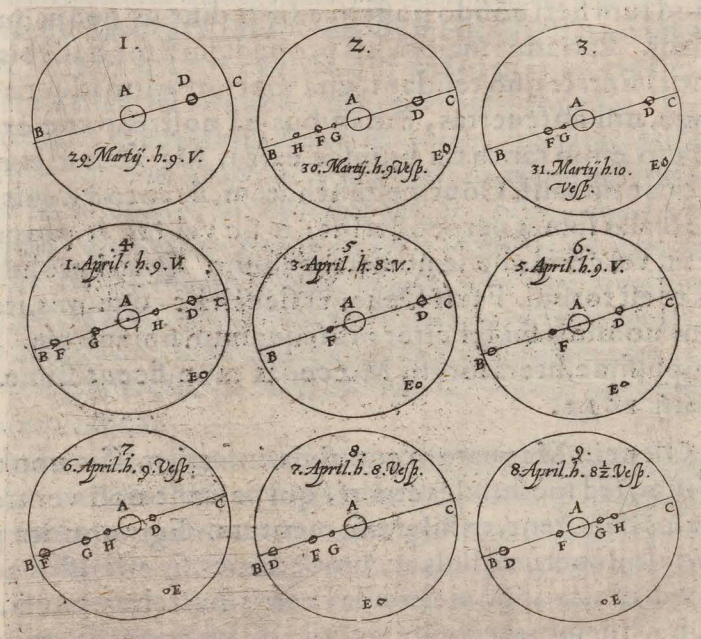 1.
D C
A
B
29. Martij. h. 9. V.
2.
A C
D
H F G
B
E
30. Martij. h. 9 Veſp.
3.
A C
D
F G
B
E
31. Martij h. 10.
Veſp.
4
1. April. h. 9. V.
A C
H D
G
B F
E
5
3. April. h. 8. V.
A C
D
F
B
E
6.
5. April. h. 9. V.
A C
D
F
B
E
7
6. April. h. 9. Veſp.
A C
D
G H
B F
E
8
7. April. h. 8. Veſp.
A C
F G
B D
E
9
8 April. h. 8½. Veſp.
A C
G H
F
B D
E